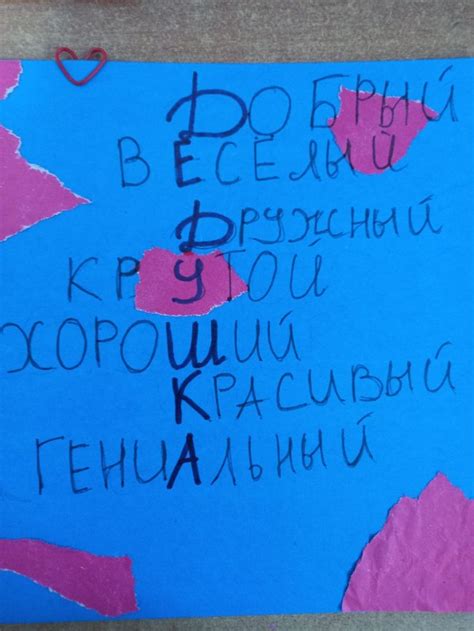 ДОБРЫЙ
ВЕСЁЛЫЙ
ДРУЖНЫЙ
КРУТОЙ
ХОРОШИЙ
КРАСИВЫЙ
ГЕНИАЛЬНЫЙ